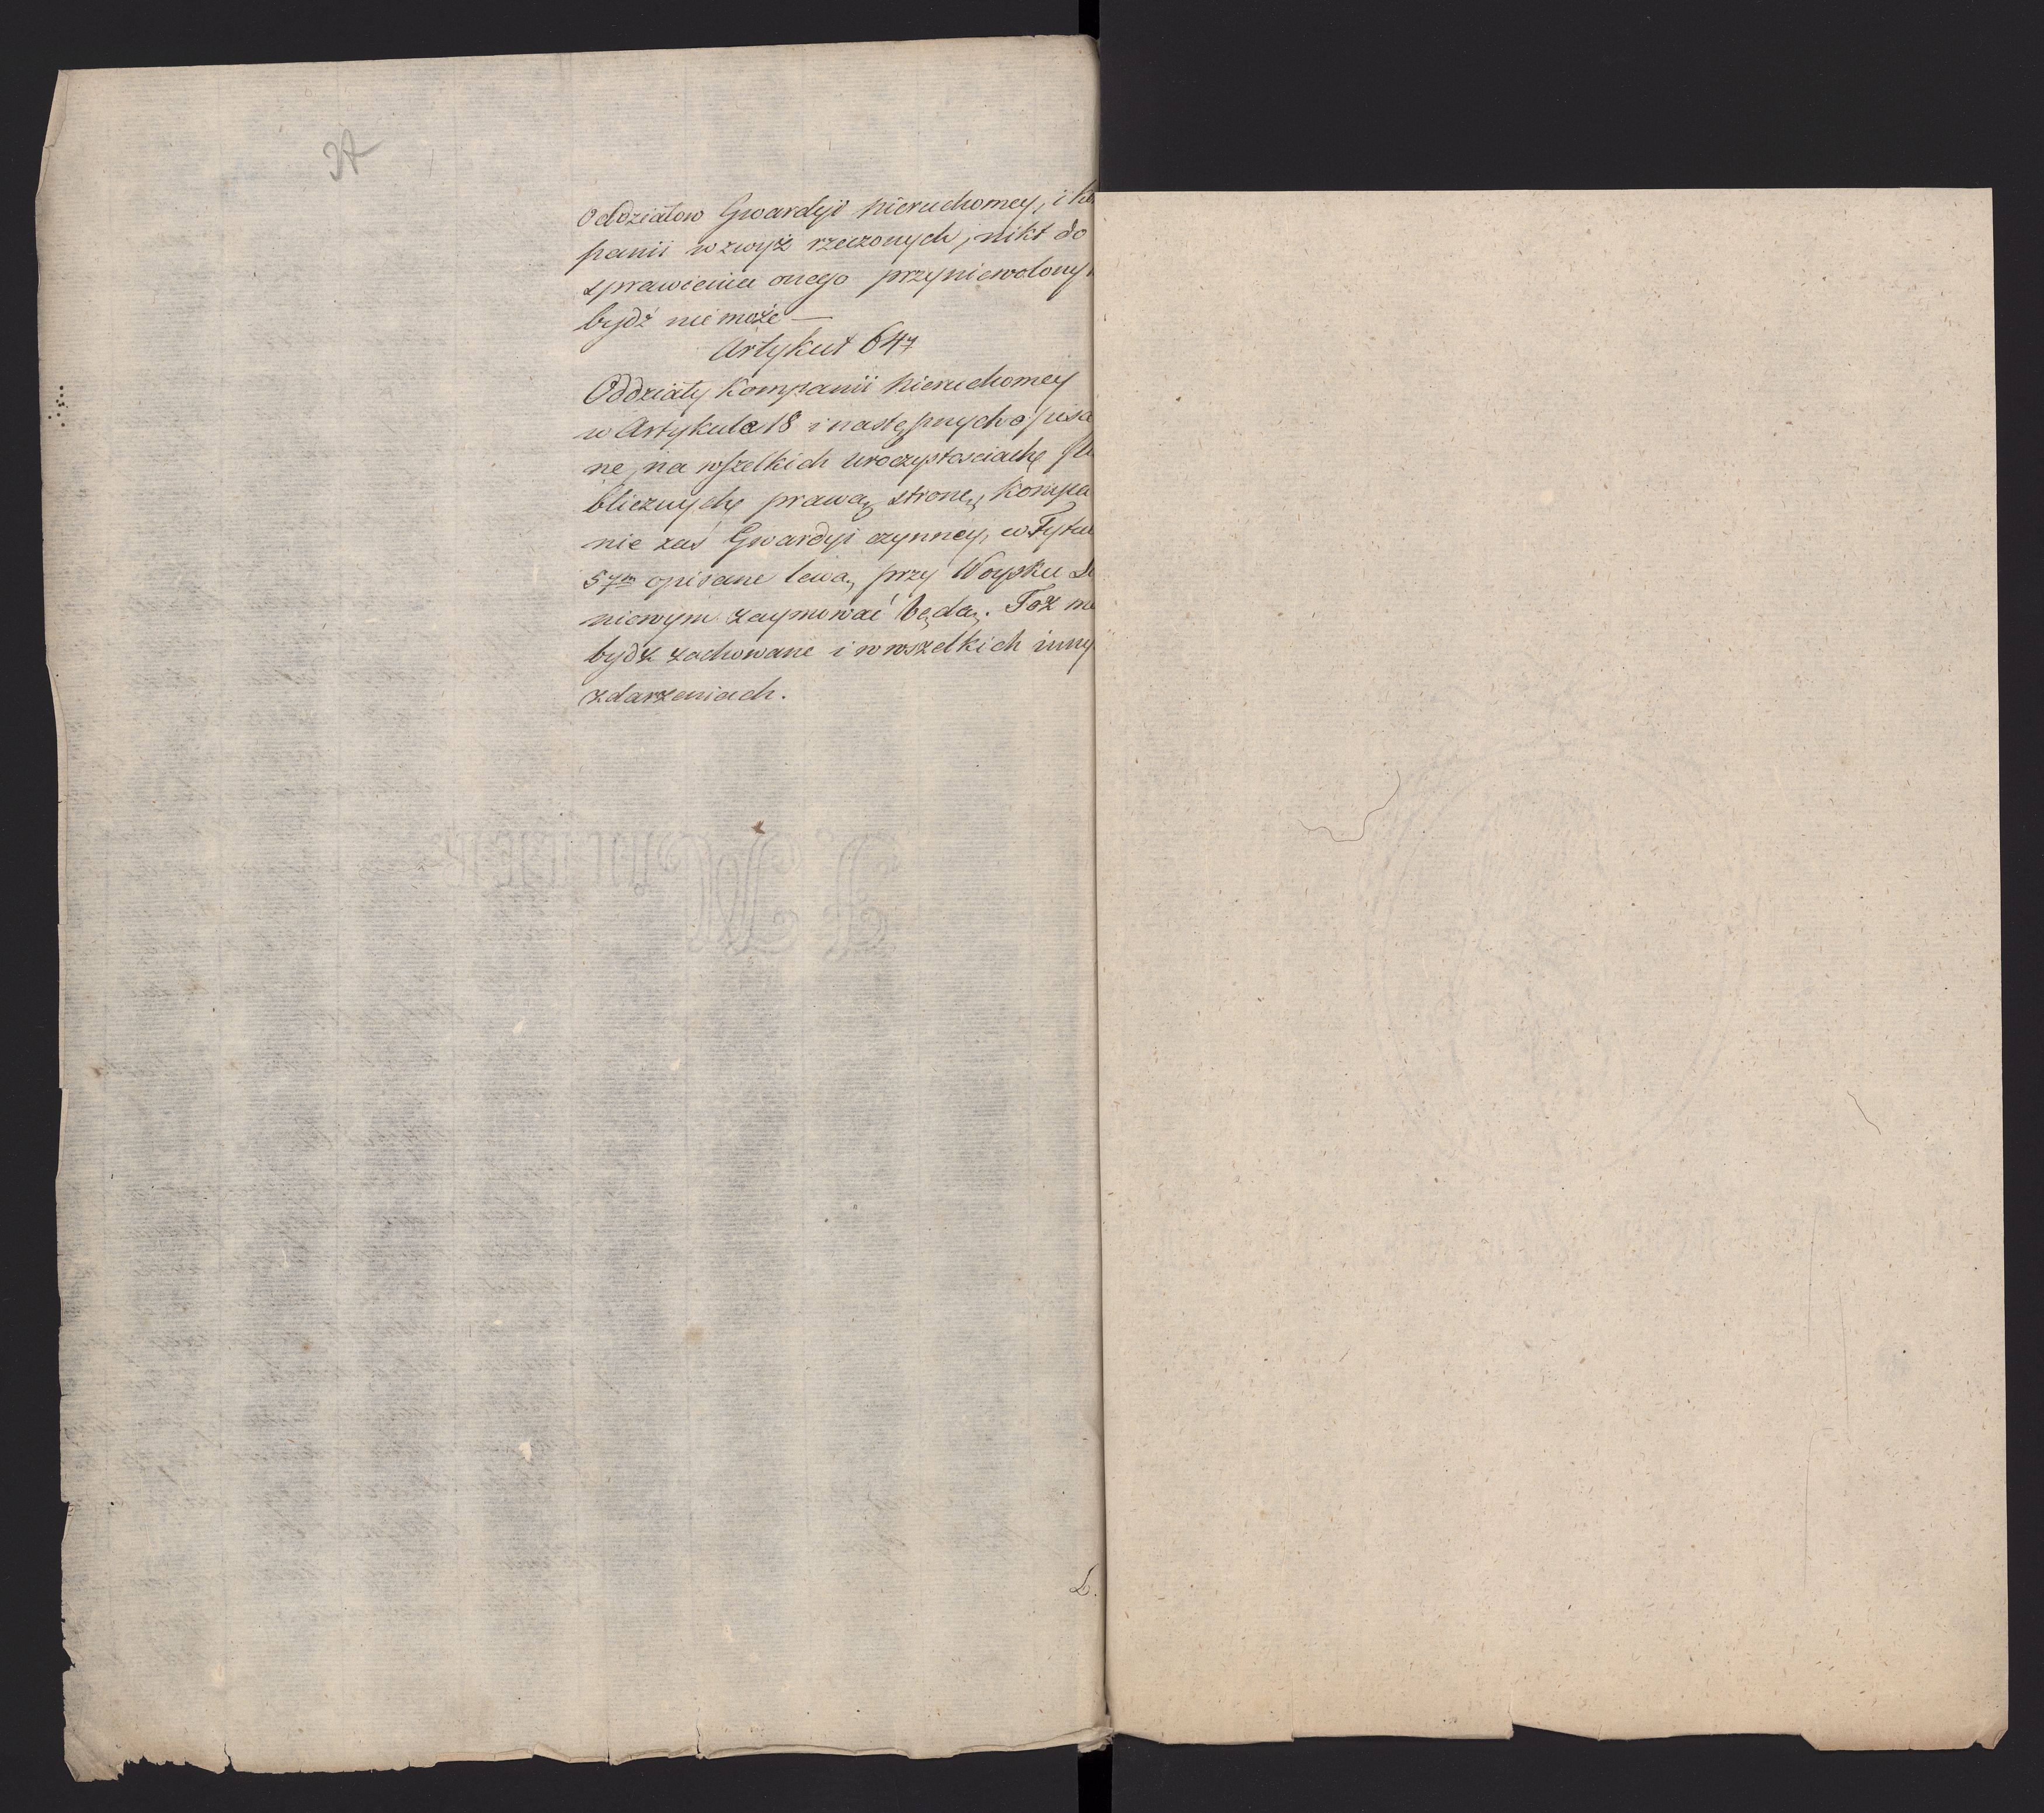 37
Oddziałow Gwardyi nieruchomey, i
panii wzwyż rzeczonych, nikt do
sprawienia onego przyniewolony
bydź nie może —
Artykuł 64ty
Oddziały Kompanii nieruchomey
w Artykule 18 i następnych opisa
ne, na wszelkich uroczystosciach pu
blicznych prawą stronę, kompa
nie zaś Gwardyi czynney, w Tytu
5tym opisane lewą, przy Woysku
niowym zaymować będą. Toż
bydź zachowane i w wszelkich inny
zdarzeniach.
L.